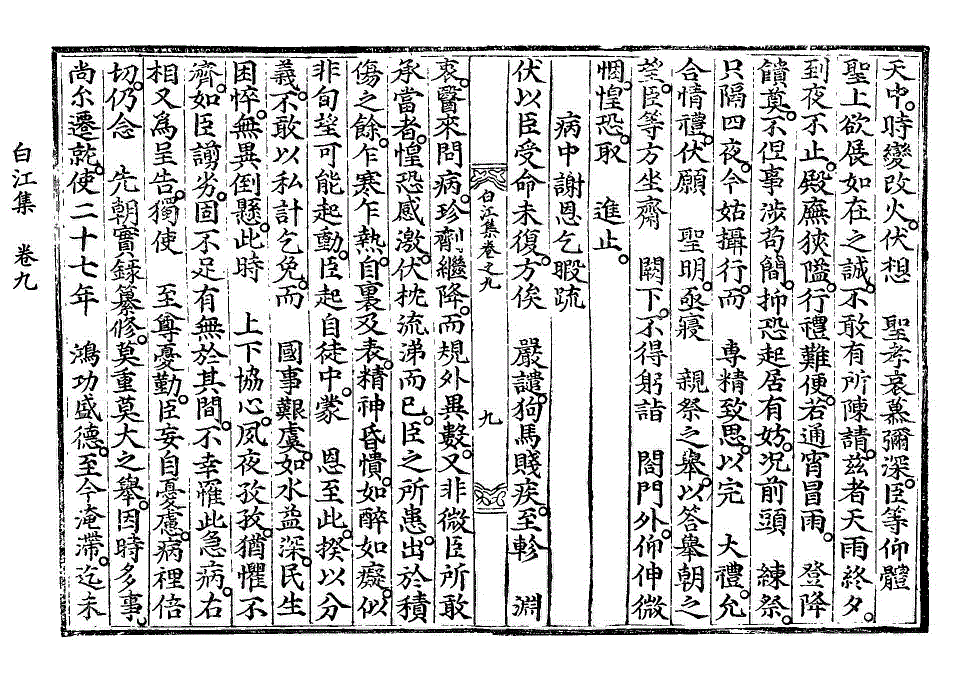 天中。時變改火。伏想 聖孝哀慕彌深。臣等仰體
聖上欲展如在之誠。不敢有所陳請。茲者天雨終夕。
到夜不止。殿廡狹隘。行禮難便。若通宵冒雨。 登降
饋奠。不但事涉苟簡。抑恐起居有妨。况前頭 練祭。
只隔四夜。今姑攝行。而 專精致思。以完 大禮。允
合情禮。伏願 聖明。亟寢 親祭之擧。以答擧朝之
望。臣等方坐齋 闕下。不得躬詣 閤門外。仰伸微
悃。惶恐。取 進止。
病中謝恩乞暇疏
伏以臣受命未復。方俟 嚴譴。狗馬賤疾。至軫 淵
白江集卷之九
九
衷。醫來問病。珍劑繼降。而規外異數。又非微臣所敢
承當者。惶恐感激。伏枕流涕而已。臣之所患。出於積
傷之餘。乍寒乍熱。自裏及表。精神昏憒。如醉如癡。似
非旬望可能起動。臣起自徒中。蒙 恩至此。揆以分
義。不敢以私計乞免。而 國事艱虞。如水益深。民生
困悴。無異倒懸。此時 上下協心。夙夜孜孜。猶懼不
濟。如臣謭劣。固不足有無於其間。不幸罹此急病。右
相又爲呈告。獨使 至尊憂勤。臣妄自憂慮。病裡倍
切。仍念 先朝實錄纂修。莫重莫大之擧。因時多事。
尚尒遷就。使二十七年 鴻功盛德。至今淹滯。迄未
白江集 卷九